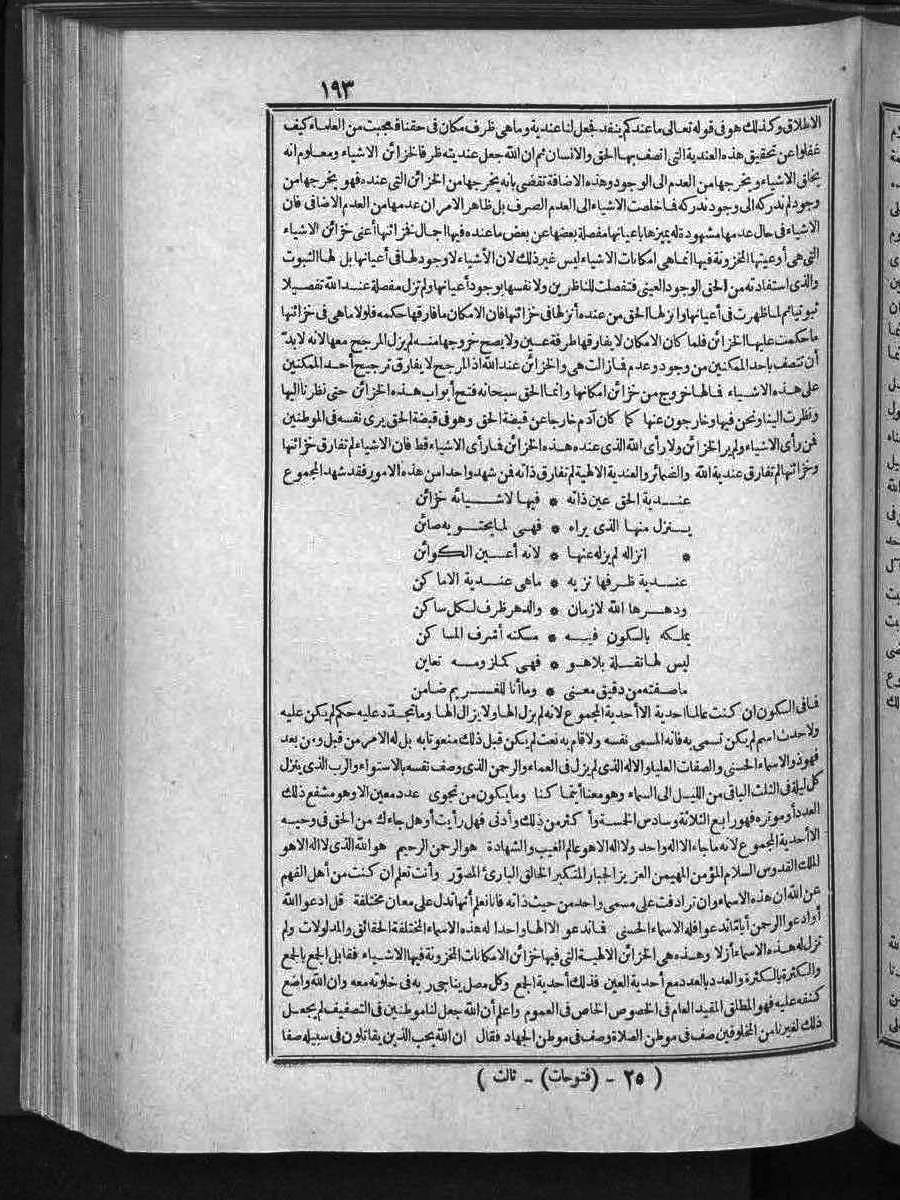 ١٩٣
الاطلاق وكذلك هو في قوله تعالى ما عندكم ينفد فجعل لنا عندية وما هي ظرف مكان في حقنا فعجبت من العلماء كيف
غفلوا عن تحقيق هذه العندية التي اتصف بها الحق والانسان ثم ان الله جعل عنديته ظرفا لخزائن الاشياء ومعلوم انه
يخلق الاشياء ويخرجها من العدم الى الوجود وهذه الاضافة تقضي بانه يخرجها من الخزائن التي عنده فهو يخرجها من
وجود لم ندركه الى وجود ندركه فما خلصت الاشياء الى العدم الصرف بل ظاهر الامر ان عدمها من العدم الاضافي فان
الاشياء في حال عدمها مشهودة له يميزها باعيانها مفصلة بعضها عن بعض ما عنده فيها اجمال فخزائنها أعني خزائن الاشياء
التي هي أوعيتها المخزونة فيها انما هي امكانات الاشياء ليس غير ذلك لان الأشياء لا وجود لها في أعيانها بل لها الثبوت
والذي استفادته من الحق الوجود العيني فتفصلت للناظرين ولانفسها بوجود أعيانها ولم تزل مفصلة عند الله تفصيلا
ثبوتيا ثم لما ظهرت في أعيانها وانزلها الحق من عنده أنزلها في خزائنها فان الامكان ما فارقها حكمه فلولا ما هي في خزائنها
ما حكمت عليها الخزائن فلما كان الامكان لا يفارقها طرفة عين ولا يصح خروجها منه لم يزل المرجح معها لانه لا بدّ
أن تتصف باحد الممكنين من وجود وعدم فما زالت هي والخزائن عند الله اذ المرجح لا يفارق ترجيح أحد الممكنين
على هذه الاشياء فما لها خروج من خزائن امكانها وانما الحق سبحانه فتح أبواب هذه الخزائن حتى نظرنا اليها
ونظرت الينا ونحن فيها وخارجون عنها كما كان آدم خارجا عن قبضة الحق وهو في قبضة الحق يرى نفسه في الموطنين
فمن رأى الاشياء ولم ير الخزائن ولا رأى الله الذي عنده هذه الخزائن فما رأى الاشياء قط فان الاشياء لم تفارق خزائنها
وخزائنها لم تفارق عندية الله والضمائر والعندية الالهية لم تفارق ذاته فمن شهد واحدا من هذه الامور فقد شهد المجموع
عندية الحق عين ذاته * فيها لاشيائه خزائن
ينزل منها الذي يراه * فهي لما يحتويه صائن
* انزاله لم يزله عنها * لانه أعين الكوائن
عندية ظرفها نزيه * ما هي عندية الاماكن
ودهرها الله لا زمان * والدهر ظرف لكل ساكن
يملكه بالسكون فيه * مسكنه أشرف المساكن
ليس لها نقلة بلاهو * فهي كما زومه تعاين
ما صفته من دقيق معنى * وما أنا للغريم ضامن
فما في السكون ان كنت عالما احدية الا أحدية المجموع لانه لم يزل الها ولا يزال الها وما تجدّد عليه حكم لم يكن عليه
ولا حدث اسم لم يكن تسمى به فانه المسمى نفسه ولا قام به نعت لم يكن قبل ذلك منعوتا به بل له الامر من قبل ومن بعد
فهو ذو الاسماء الحسنى والصفات العليا والاله الذي لم يزل في العماء والرحمن الذي وصف نفسه بالاستواء والرب الذي ينزل
كل ليلة في الثلث الباقي من الليل الى السماء وهو معنا أينما كنا وما يكون من نجوى عدد معين الا وهو مشفع ذلك
العدد أو موتره فهو رابع الثلاثة وسادس الخمسة وأكثر من ذلك وأدنى فهل رأيت أو هل جاءك من الحق في وحيه
الا أحدية المجموع لانه ما جاء الا اله واحد ولا اله الا هو عالم الغيب والشهادة هو الرحمن الرحيم هو الله الذي لا اله الا هو
الملك القدوس السلام المؤمن المهيمن العزيز الجبار المتكبر الخالق البارئ المصوّر وأنت تعلم ان كنت من أهل الفهم
عن الله ان هذه الاسماء وان ترادفت على مسمى واحد من حيث ذاته فانا نعلم أنها تدل على معان مختلفة قل ادعوا الله
أو ادعوا الرحمن أياما تدعوا فله الاسماء الحسنى فما ندعو الا الها واحدا له هذه الاسماء المختلفة الحقائق والمدلولات ولم
تزل له هذه الاسماء أزلا وهذه هي الخزائن الالهية التي فيها خزائن الامكانات المخزونة فيها الاشياء فقابل الجمع بالجمع
والكثرة بالكثرة والعدد بالعدد مع أحدية العين فذلك أحدية الجمع وكل مصل يناجي ربه في خلوته معه وان الله واضع
كنفه عليه فهو المطلق المقيد العام في الخصوص الخاص في العموم واعلم أن الله جعل لنا موطنين في التصفيف لم يجعل
ذلك لغيرنا من المخلوقين صف في موطن الصلاة وصف في موطن الجهاد فقال ان الله يحب الذين يقاتلون في سبيله صفا
( ٢٥ - (فتوحات) - ثالث )